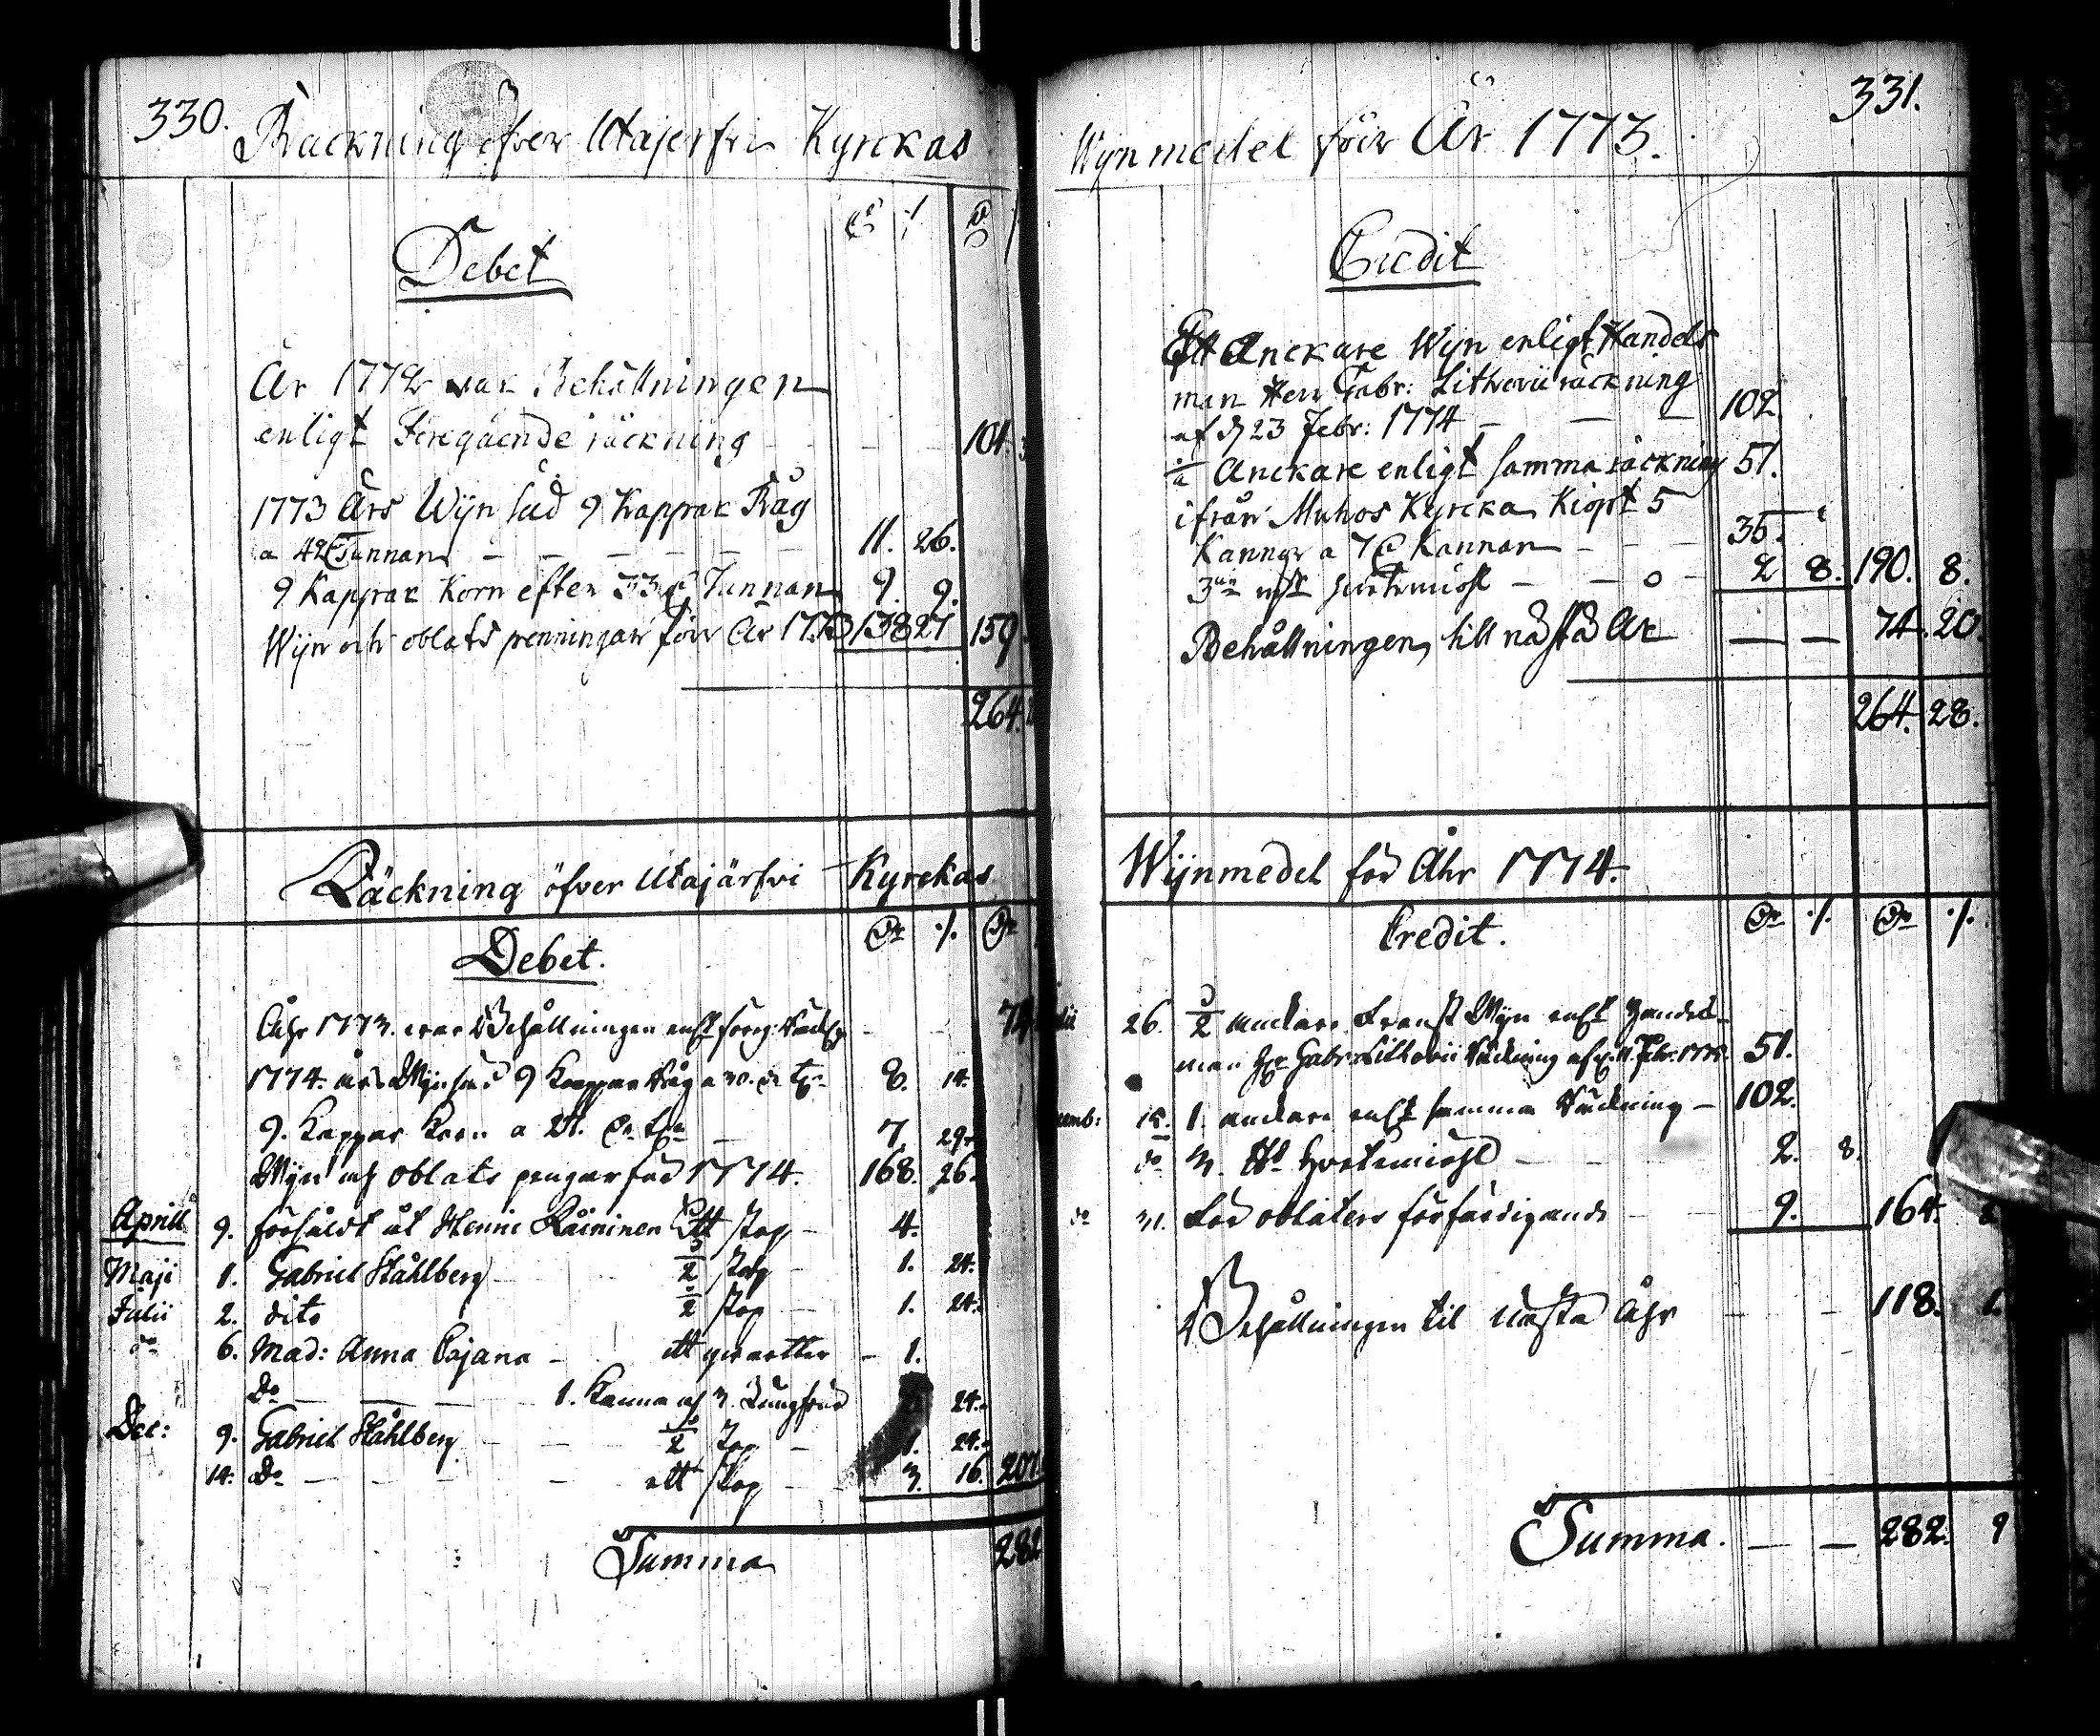 330.
Räckning öfver Utajerfvi Kyrckas
Debet
År 1772 var Behållningen
enligt Föregående räckning — — 104.
1773 Års Wijn säd 9 Kappar Råg
a 42 Tunnan — — — — — 11. 26.
9 Kappar Korn efter 33 Tunnan 9. 9.
Wijn och oblats penningar förr År 1773 138 27 159.
264.
Räckning öfver Utajärfvi Kyrckas
Debet.
Åhr 1773. war Behållningen enligt föreg: Räckn — — 74
1774. års Wijn säd 9 Kappar Råg a 30. 8. 14.
9. Kappar Korn a 27. 7. 29.
Wijn och oblats pengar för 1774. 168. 26.
Aprill 9. försåldt åt Henric Räininen Ett stop — 4.
Maji 1. Gabriel Ståhlberg — 1/2 stop 1. 24.
Julii 2. dito 1/2 stop — 1. 24.
do 6. Mad: Anna Cajana — ett qvartter — 1.
Do — — — 1. Kanna och 3. Jungfrur 24.
Dec: 9. Gabriel Ståhlberg — — 1/2 stop — 1. 24.
14. Do — — — — ett stop — 3. 16. 207.
Summa 282
331.
Wijnmedel förr År 1773.
Credit
Ett Anckare Wijn enligt Handels
man Herr Gabr: Lithovii räckning
af d 23 Febr: 1774 — — — 102.
1/2 Anckare enligt samma räckning 51.
ifrån Muhos Kyrcka Kiöpt 5
Kannor a 7 Kannan — — — 35.
3 hvetemiöhl — — 2 8. 190. 8.
Behållningen till nästa År — — 74. 20.
264. 28.
Wijnmedel för Åhr 1774.
Credit.
26. 1/2 anckare Franskt Wijn enligt Handels-
man Hr Gabr: Lithovii Räckning af d. 11. Febr: 1775. 51.
15. 1. anckare enligt samma Räckning — 102.
do 3. hvetemiöhl — — — 2. 8.
do 31. För oblaters förfärdigande — — 9. 164.
Behållningen til nästa Åhr — — 118.
Summa. — — 282. 9